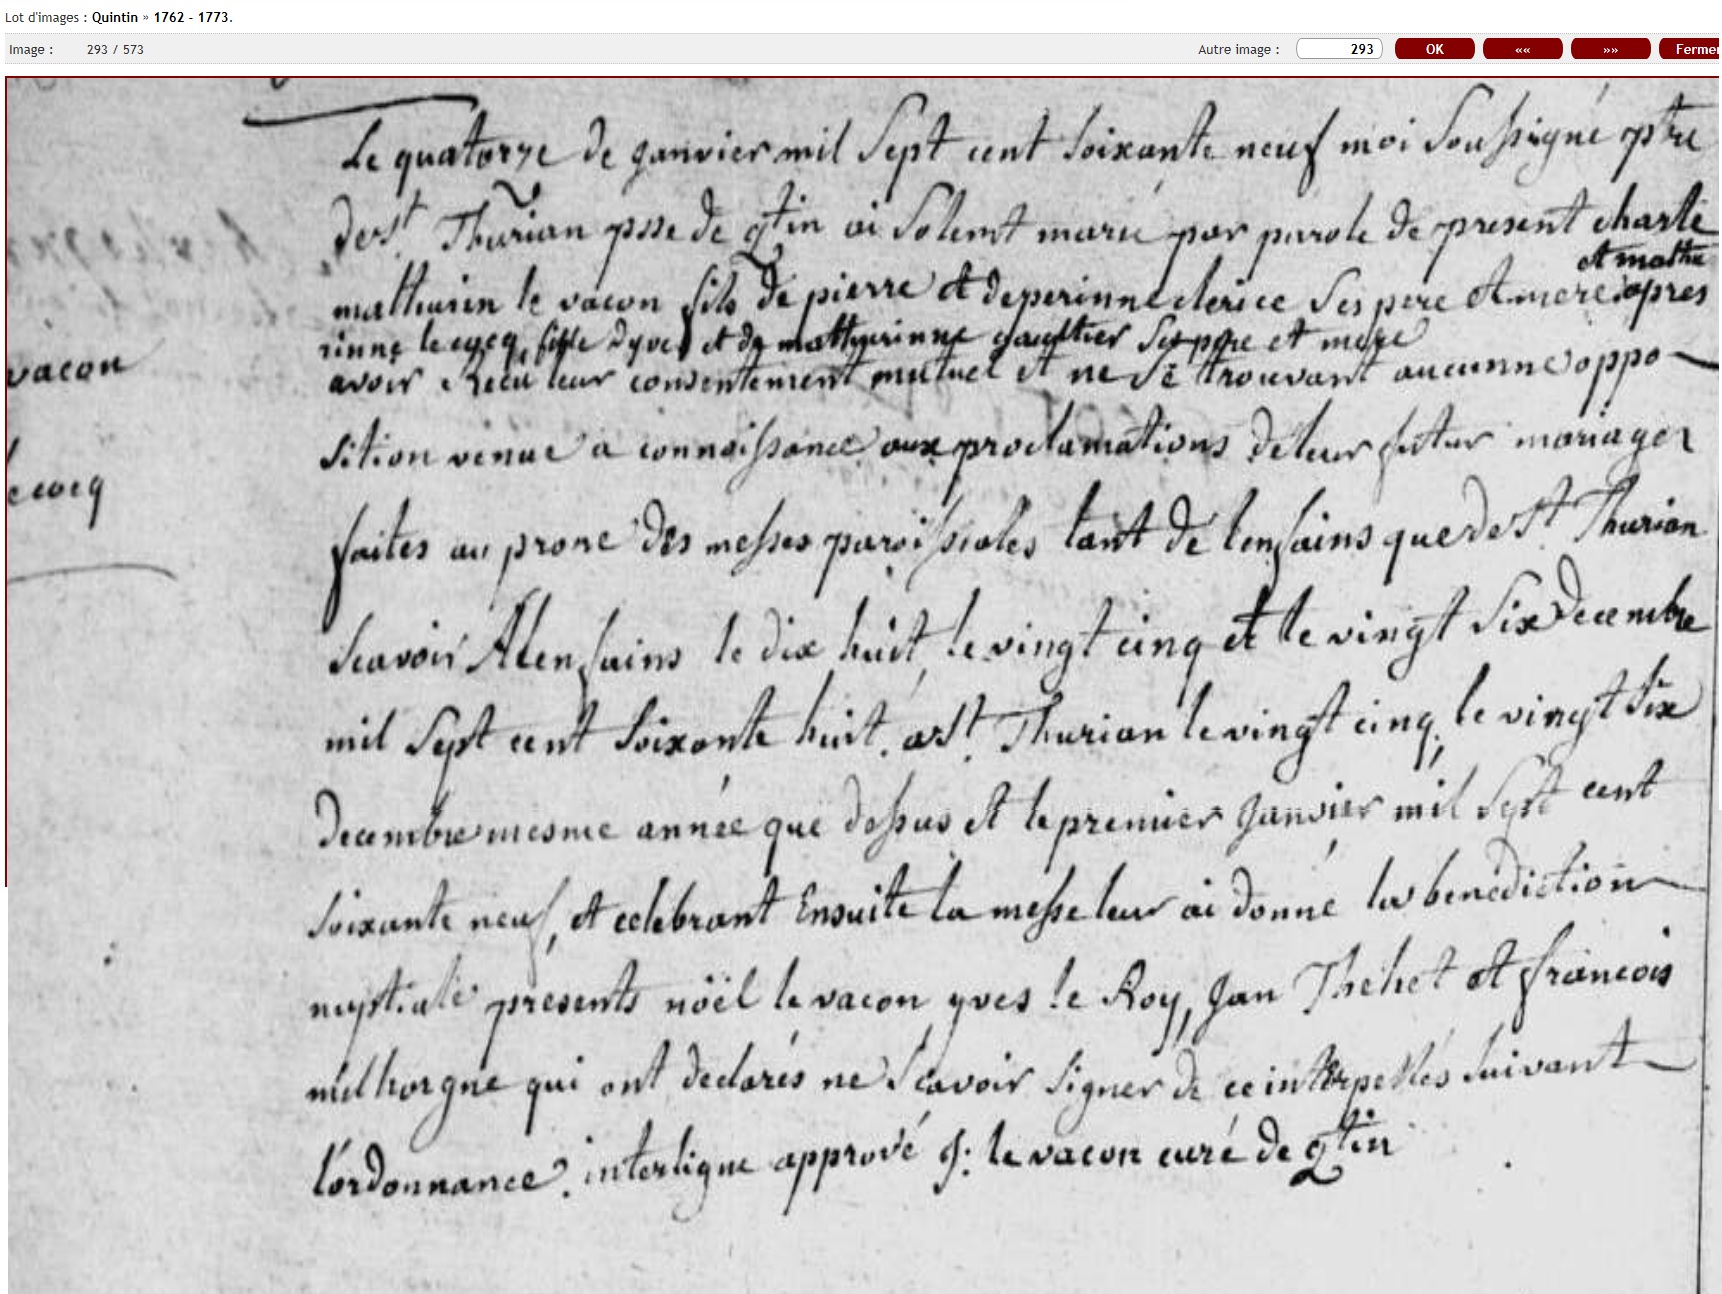 Lot d'images : Quintin » 1762 - 1773.
Image : 293 / 573
Autre image : 293 OK «« »» Fermer
Le quatorze de janvier mil Sept cent Soixante neuf moi Soussigné ptre
de St. Thurian psse de qtin ai Solemt marié par parole de present charle
et mathu
mathurin le vacon fils de pierre et de perinne clerice Ses pere et mere apres
rinne le cocq fille dyves et de mathurinne gaultier Ses pere et mere
avoir Recu leur consentement mutuel et ne Se trouvant aucunne oppo
vacon
sition venue a connoissance aux proclamations de leur futur mariage
ecocq
faites au prone des messes paroissiales tant de lenfains que de St. Thurian
Scavoir A lenfains le dix huit, le vingt cinq et le vingt Six decembre
mil Sept cent Soixante huit. a St. Thurian le vingt cinq, le vingt Six
decembre mesme année que dessus et le premier janvier mil Sept cent
Soixante neuf, et celebrant Ensuite la messe leur ai donné la benediction
nuptiale présents nöel le vacon yves le Roy, jan Thehet et francois
melhorgne qui ont declarés ne Scavoir Signer de ce interpellés Suivant
l'ordonnance. interligne apprové j: le vacon curé de qtin